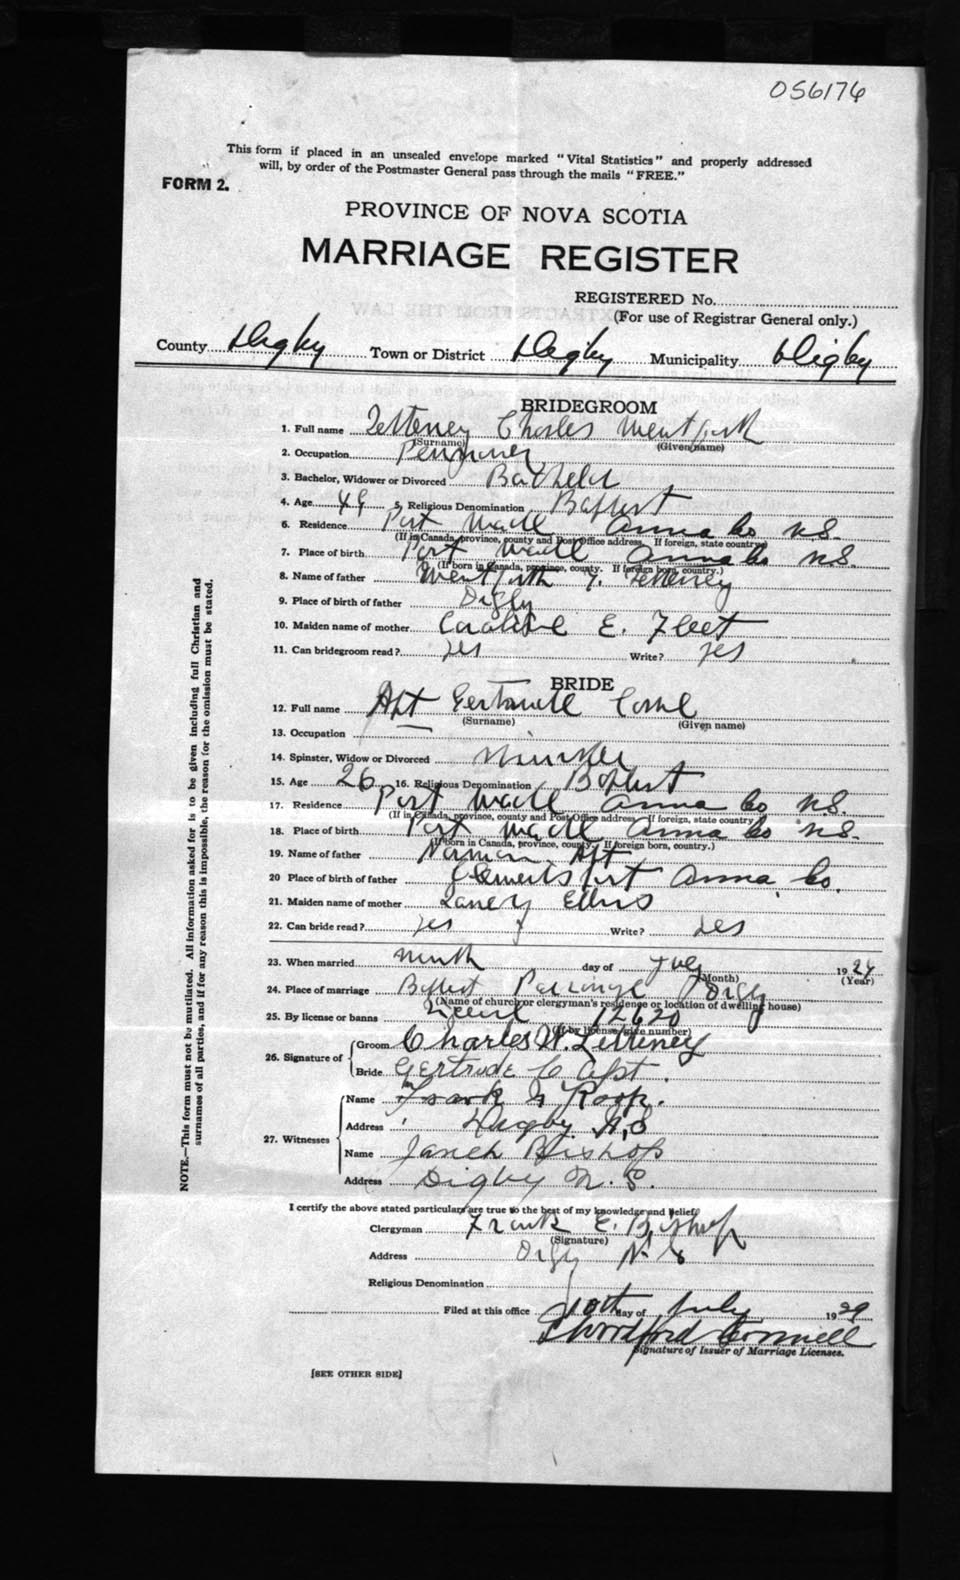 056176
This form if placed in an unsealed envelope marked "Vital Statistics" and properly addressed
will, by order of the Postmaster General pass through the mails "FREE."
FORM 2.
PROVINCE OF NOVA SCOTIA
MARRIAGE REGISTER
REGISTERED No.
(For use of Registrar General only.)
County Digby Town or District Digby Municipality Digby
BRIDEGROOM
1. Full name Letteney Charles Wentworth
(Surname) (Given name)
2. Occupation Pensioner
3. Bachelor, Widower or Divorced Bachelor
4. Age 49 5. Religious Denomination Baptist
6. Residence Port Wade Anna Co N.S.
(If in Canada, province, county and Post Office address. If foreign, state country)
7. Place of birth Port Wade Anna Co N.S.
(If born in Canada, province, county. If foreign born, country.)
8. Name of father Wentworth Letteney
9. Place of birth of father Digby
10. Maiden name of mother Caroline E. Fleet
11. Can bridegroom read? yes Write? yes
BRIDE
12. Full name Apt Gertrude
(Surname) (Given name)
13. Occupation
14. Spinster, Widow or Divorced
15. Age 26 16. Religious Denomination Baptist
17. Residence Port Wade Anna Co N.S.
(If in Canada, province, county and Post Office address. If foreign, state country)
18. Place of birth Port Wade Anna Co N.S.
(If born in Canada, province, county. If foreign born, country.)
19. Name of father Norman Apt
20 Place of birth of father Clementsport Anna Co.
21. Maiden name of mother Ellis
22. Can bride read? yes Write? yes
23. When married ninth day of July 19
(Month) (Year)
24. Place of marriage Baptist Parsonage Digby
(Name of church or clergyman's residence or location of dwelling house)
25. By license or banns License 12620
(If by license, give number)
26. Signature of Groom Charles W. Letteney
Bride Gertrude C Apt.
27. Witnesses Name Frank Roop.
Address Digby N.S
Name Bishop
Address Digby N.S.
I certify the above stated particulars are true to the best of my knowledge and belief.
Clergyman Frank E. Bishop
(Signature)
Address Digby N.S
Religious Denomination
Filed at this office 10th day of July 1929
Signature of Issuer of Marriage Licenses.
[SEE OTHER SIDE]
NOTE.—This form must not be mutilated. All information asked for is to be given including full Christian and
surnames of all parties, and if for any reason this is impossible, the reason for the omission must be stated.